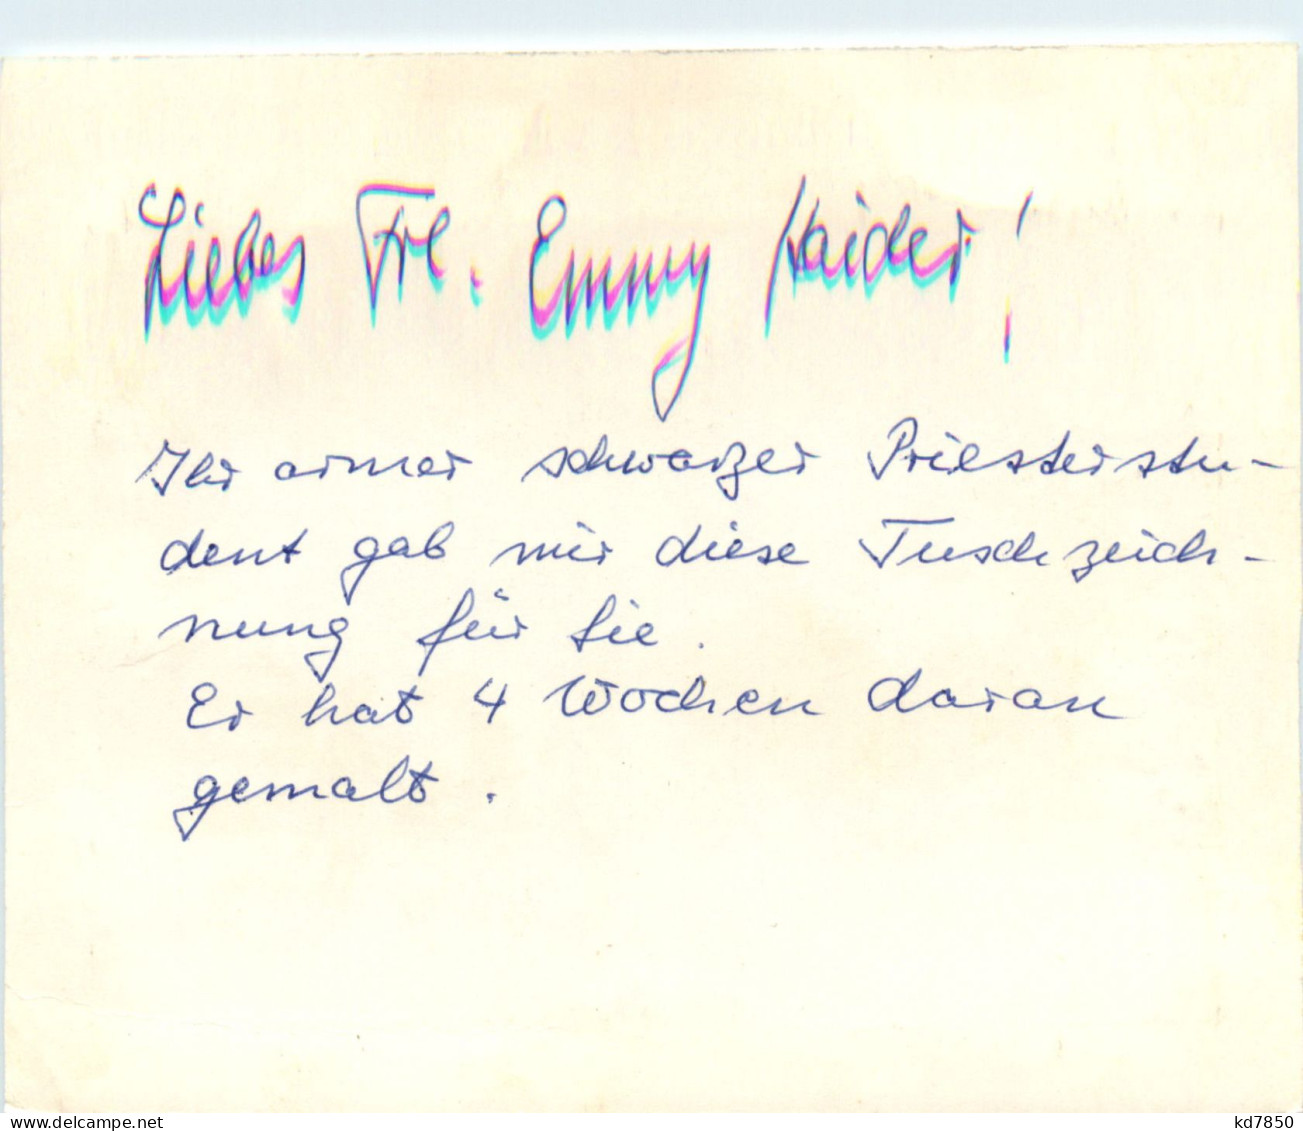 Liebes Frl. Emmy Haider!
Ihr armer schwarzer Priesterstu-
dent gab mir diese Tuschzeich-
nung für Sie.
Er hat 4 Wochen daran
gemalt.
www.delcampe.net
kd7850